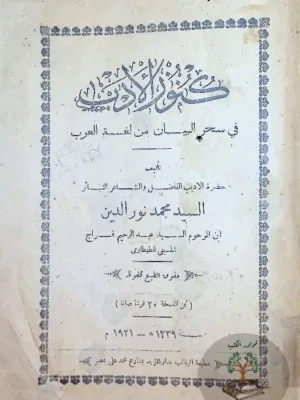 كنوز الأدب
في سحر البيان من لغة العرب
تأليف
حضرة الأديب الفاضل والشاعر الناثر
السيد محمد نور الدين
ابن المرحوم السيد عبد الرحيم فراج
الحسيني الطهطاوي
حقوق الطبع محفوظة
( ثمن النسخة ٣٠ قرشا صاغا )
سنة ١٣٣٩ هـ — ١٩٢١ م
مطبعة الرغائب بدار المؤيد بشارع محمد علي بمصر
نوادر الكتب